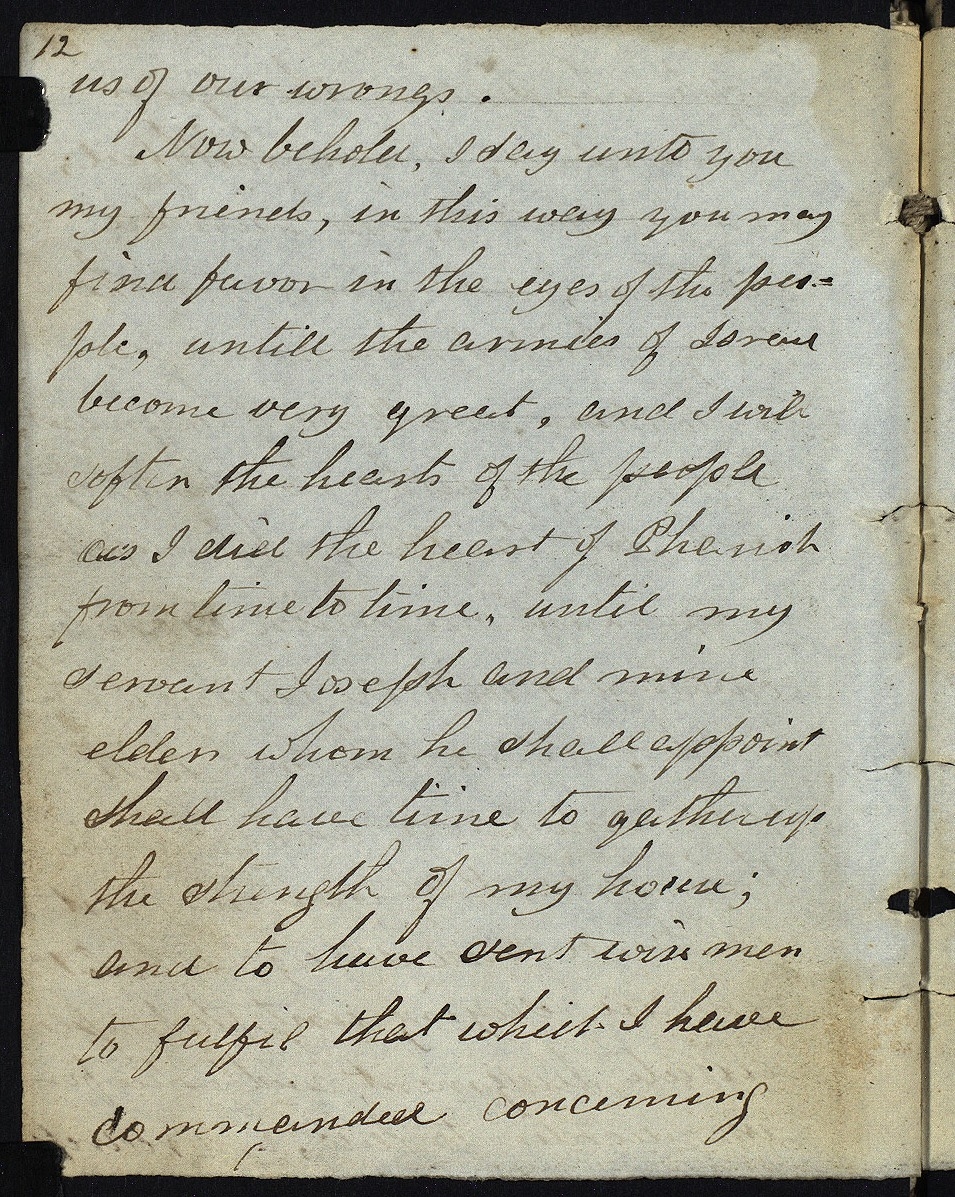 12
us of our wrongs.
Now behold, I say unto you
my friends, in this way you may
find favor in the eyes of the peo=
ple, untill the armies of Isreal
become very great, and I will
soften the hearts of the people
as I did the heart of Pharioh
from time to time, until my
servant Joseph and mine
elders whom he shall appoint
shall have time to gather up
the strength of my house;
and to have sent wise men
to fulfil that which I have
commanded concerning